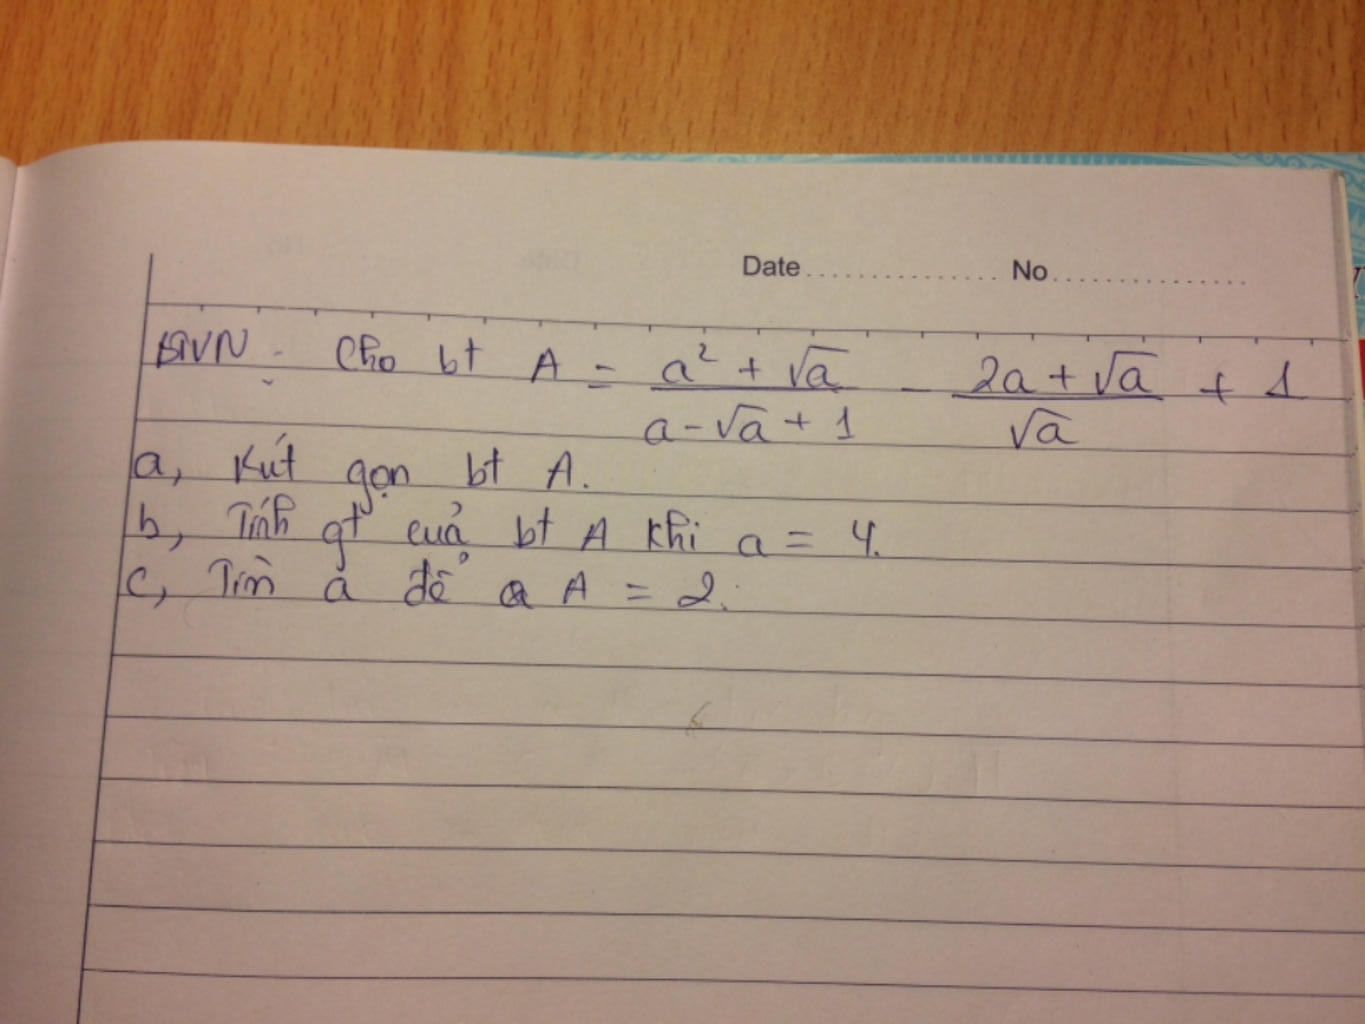 Date................ No................
BTVN: Cho bt A = (a² + √a)/(a - √a + 1) - (2a + √a)/√a + 1
a, Rút gọn bt A.
b, Tính gt của bt A khi a = 4.
c, Tìm a để A = 2.